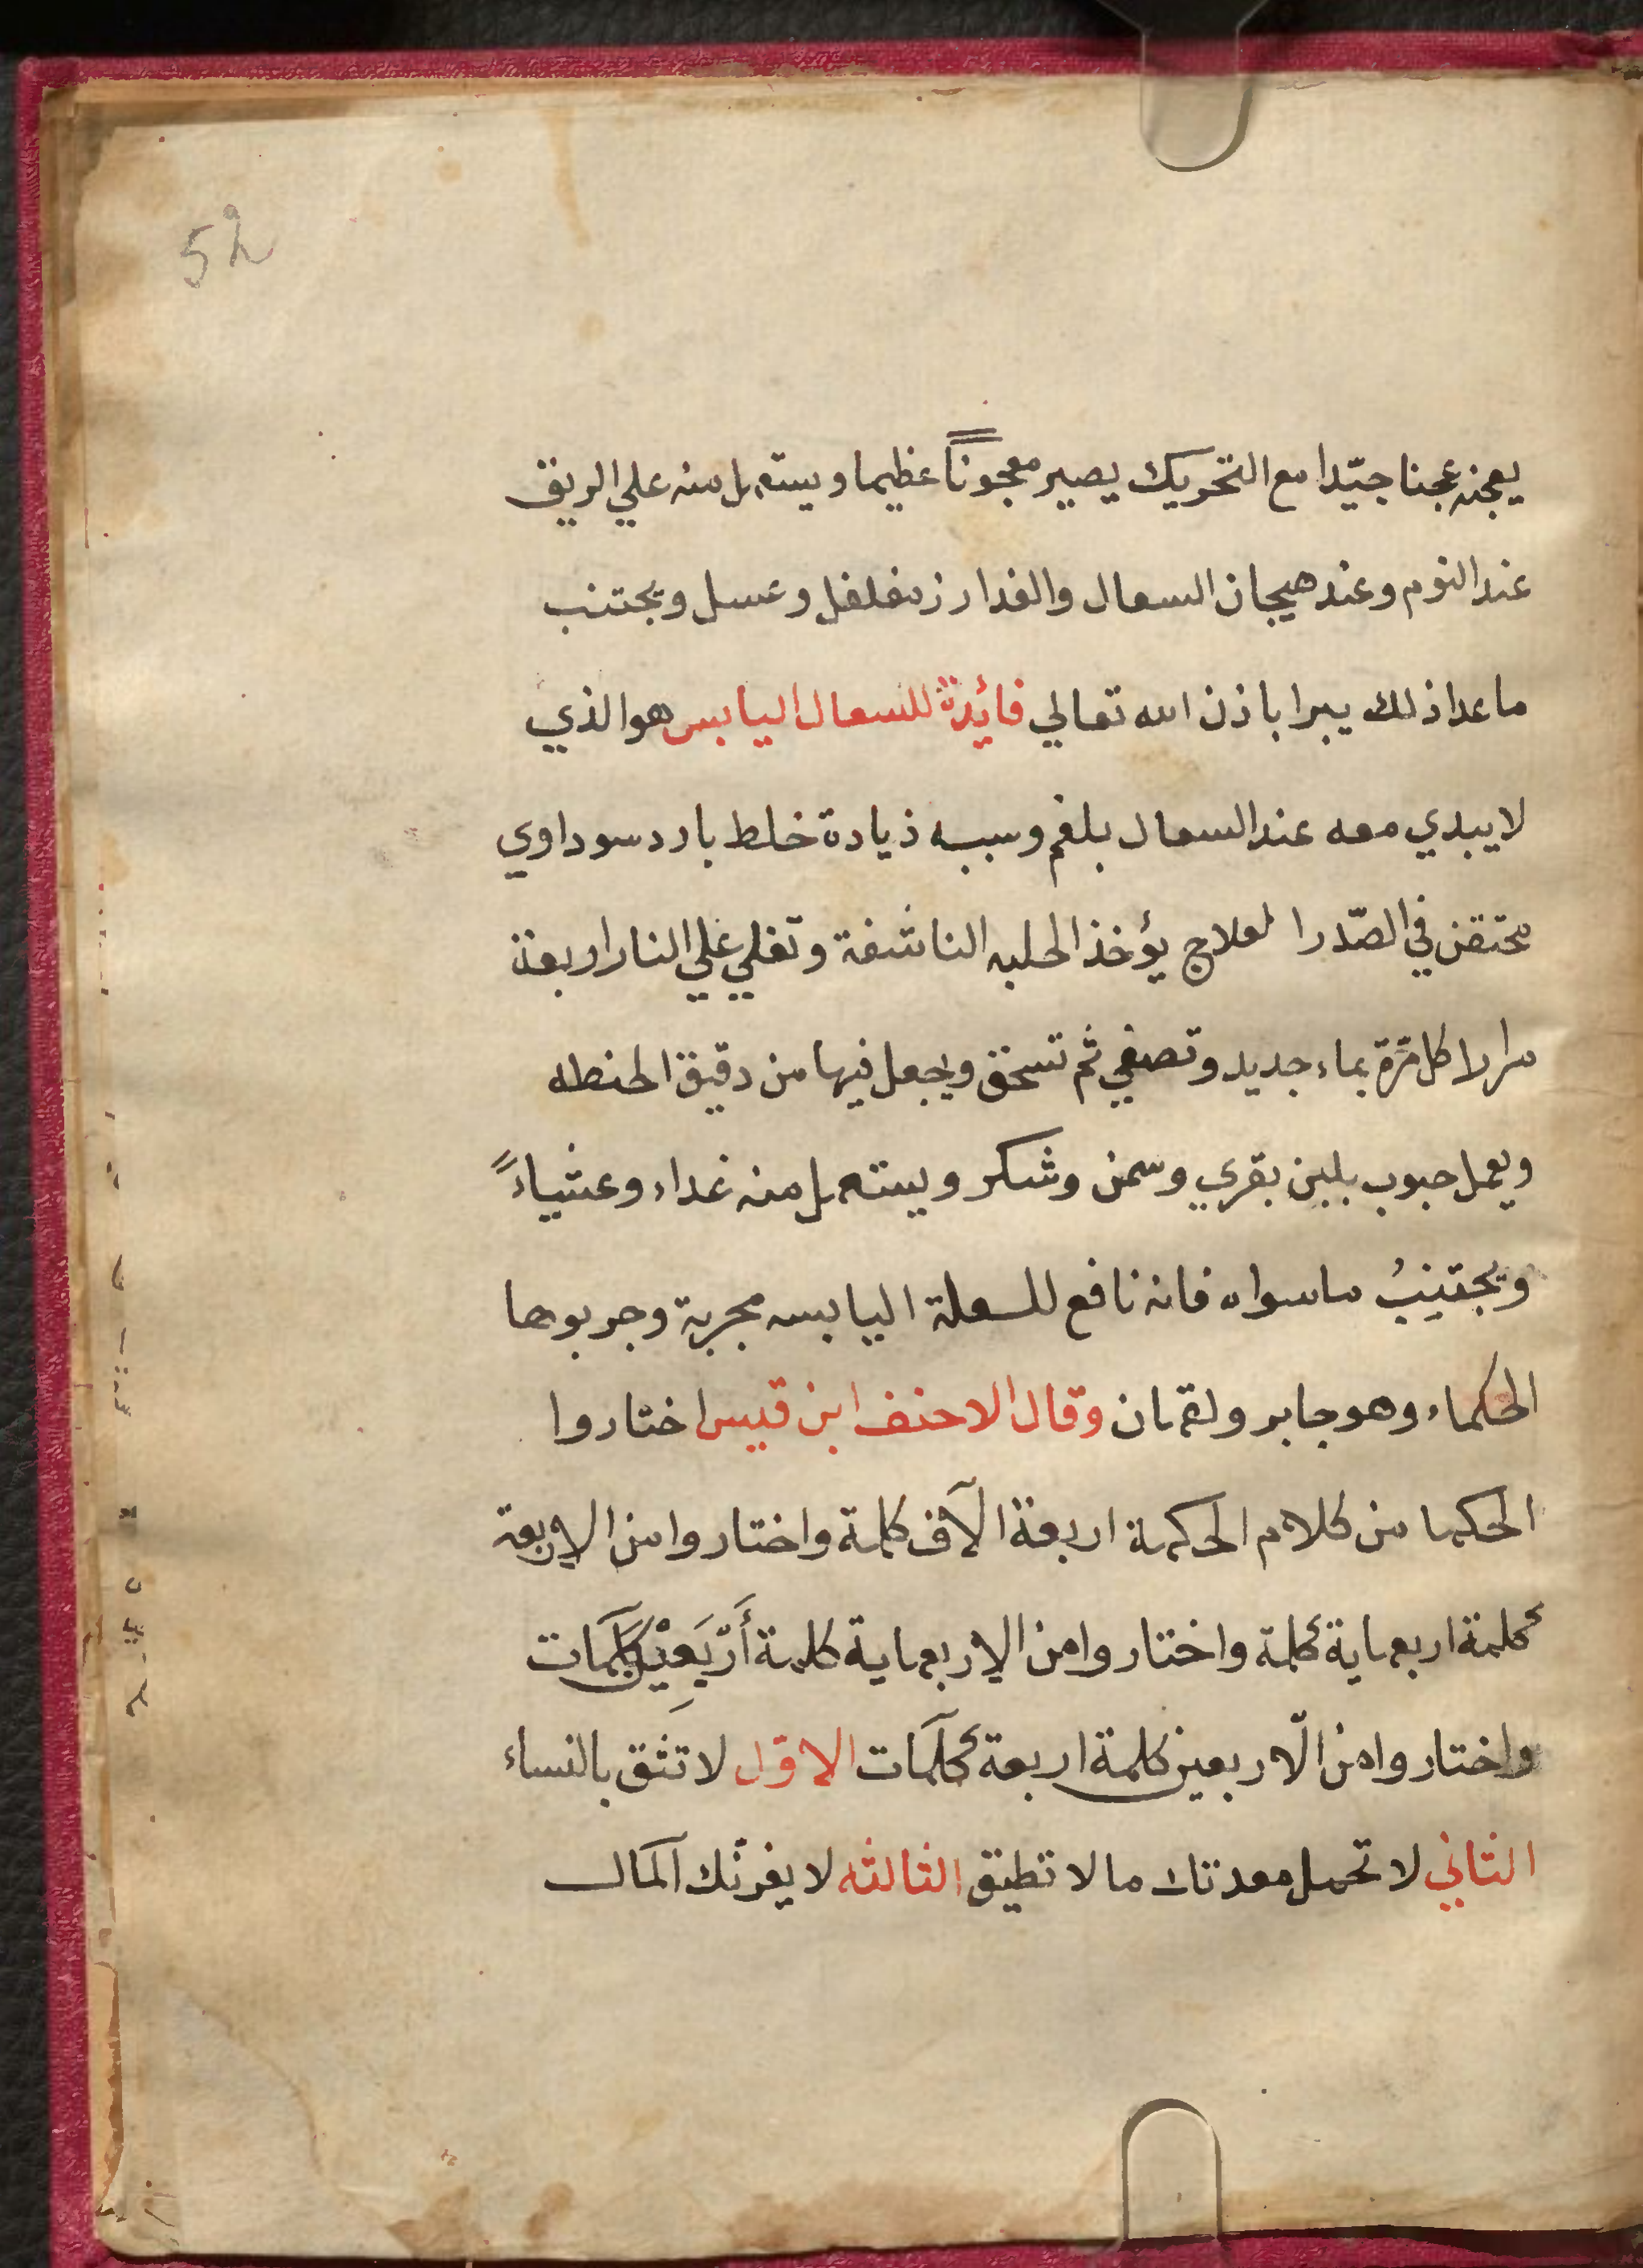 52
يعجنه عجنا جيّدا مع التحريك يصير معجوناً عظيما ويستعمل منه علي الريق
عند النوم وعند هيجان السعال والغدا رز مفلفل وعسل ويجتنب
ما عدا ذلك يبرا باذن الله تعالي فائدة للسعال اليابس هو الذي
لا يبدي معه عند السعال بلغم وسببه ذيادة خلط بارد سوداوي
محتقن في الصّدر العلاج يؤخذ الحلبه الناشفة وتغلي علي النار اربعة
مرارا كل مرّة بماء جديد وتصفي ثم تسحق ويجعل فيها من دقيق الحنطه
ويعمل حبوب بلبن بقري وسمن وشكر ويستعمل منه غداء وعشياءً
ويجتنبُ ما سواه فانه نافع للسعلة اليابسه مجربة وجربوها
الحكماء وهو جابر ولقمان وقال الاحنف ابن قيس اختاروا
الحكما من كلام الحكمة اربعة الآف كلمة واختاروا من الاربعة
كلمة اربعماية كلمة واختاروا من الاربعماية كلمة أرّبَعِيْن كلَمَات
واختاروا من الّاربعين كلمة اربعة كلَمَات الاوّل لا تثق بالنساء
الثاني لا تحمل معدتك ما لا تطيق الثالثه لا يغرنّك المَال